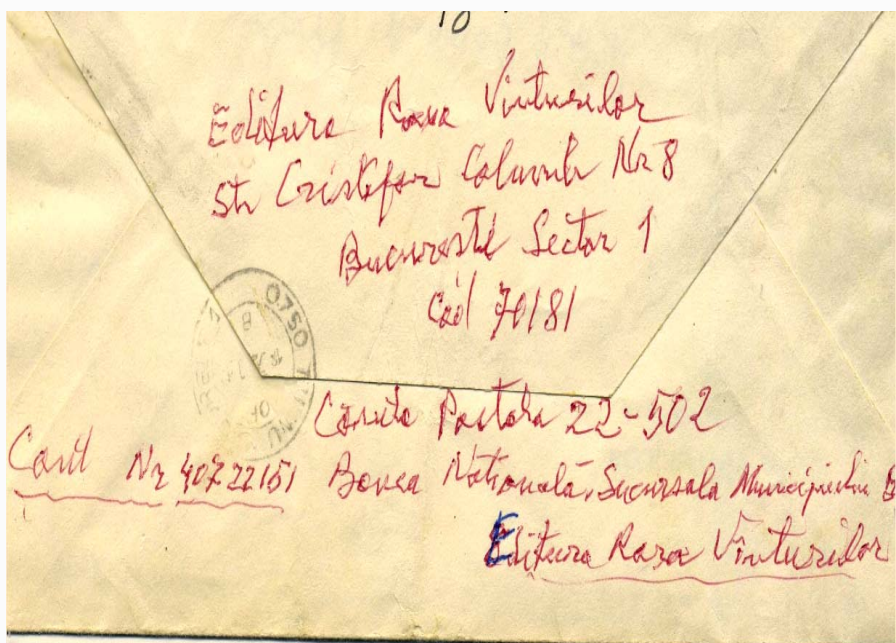 Editura Roza Vinturilor
Str Cristofor Columb Nr 8
Bucuresti Sector 1
Cod 70181
Căsuta Postala 22-502
Cont Nr 40722151 Banca Natională, Sucursala Municipiului B
Editura Roza Vînturilor